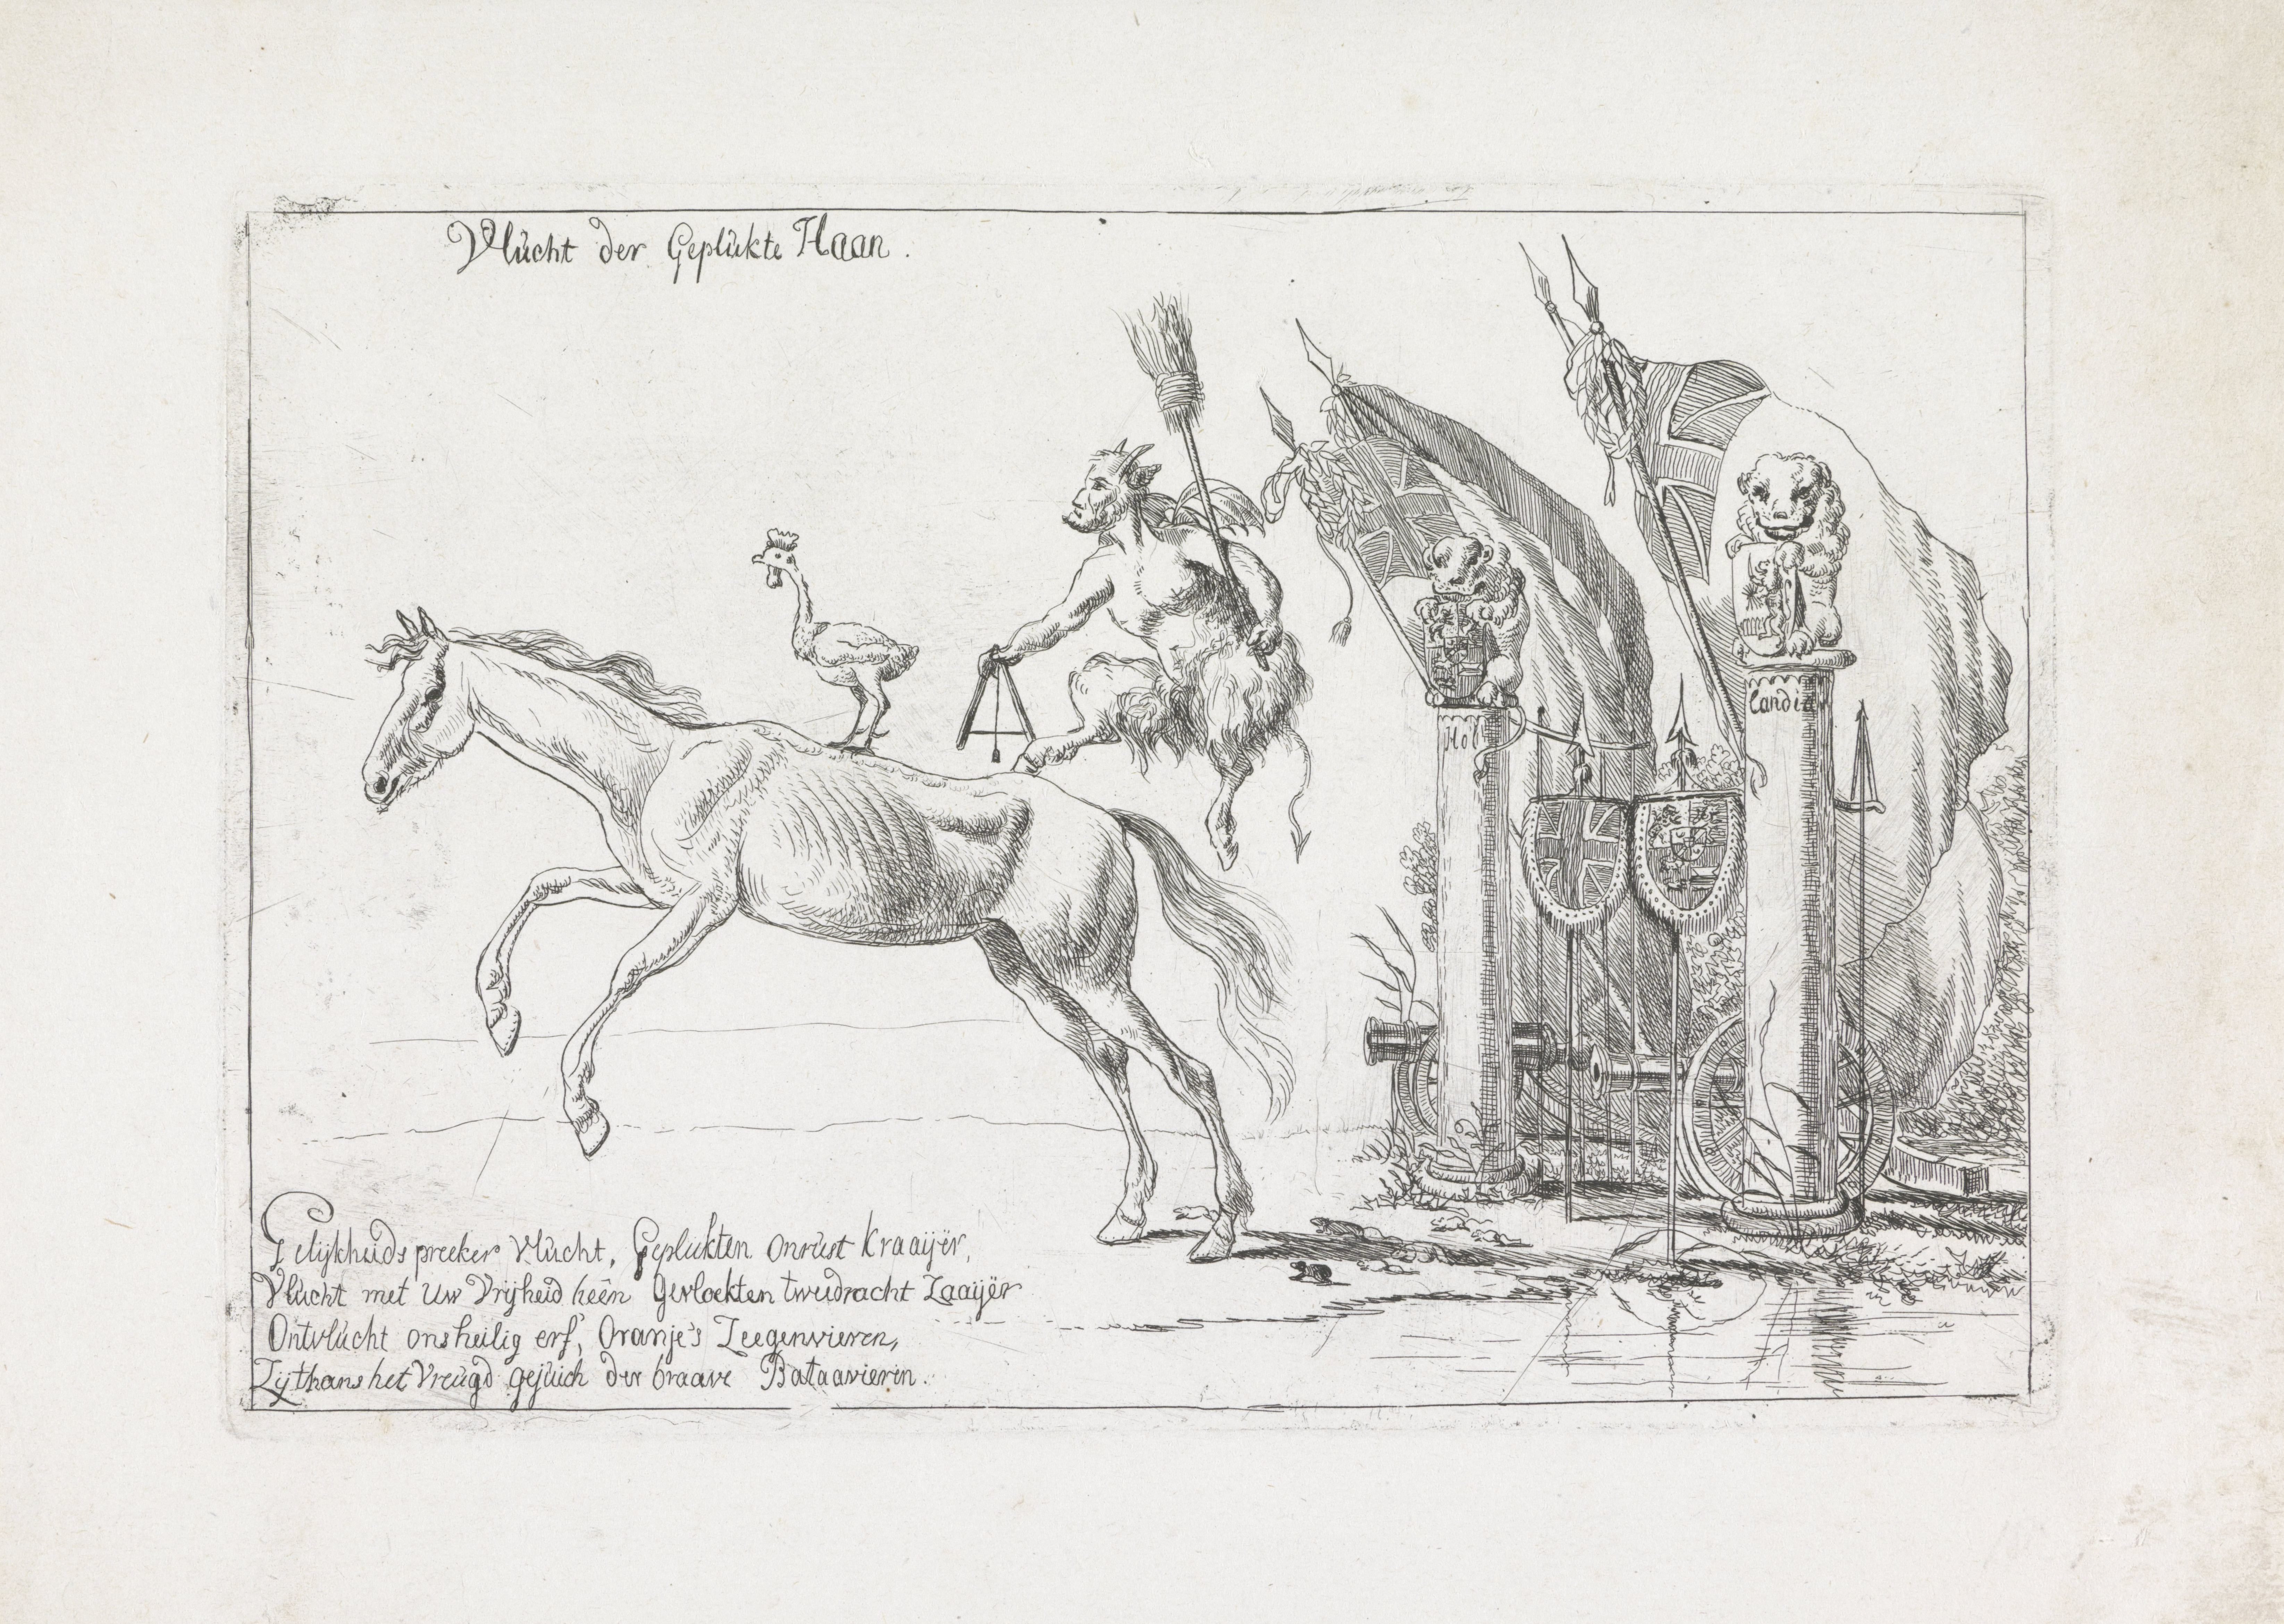 Vlucht der Geplukte Haan.
Hol
Candia
Gelijkheids preeker vlucht, Geplukten onrust kraaijer,
Vlucht met uw Vrijheid heên Gevloekten tweedracht Zaaijër
Ontvlucht ons heilig erf, Oranje's Zeegenvieren,
Zij thans het Vreugd gejuich der braave Bataavieren.